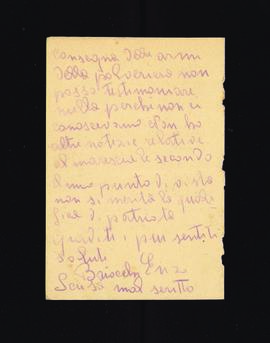 consegna delle armi
della polveriera non
posso testimoniare
nulla perché non ci
conoscevamo e non ho
altre notizie relative
al maresciallo secondo
il mio punto di vista
non si merita la quali
fica di patriota
i più sentiti
saluti
Enzo
Scusa mal scritto